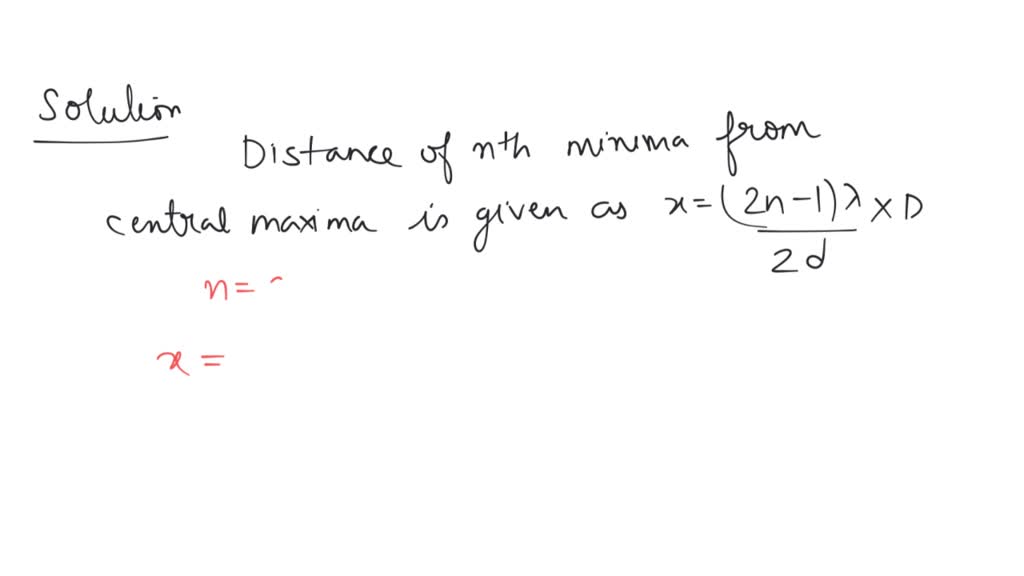 Solution
Distance of nth minima from
central maxima is given as x = (2n-1)λ / 2d × D
n =
x =